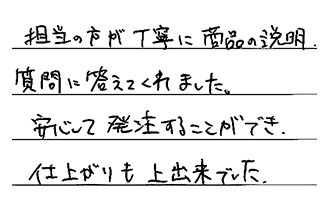 担当の方が丁寧に商品の説明.
質問に答えてくれました。
安心して発注することができ.
仕上がりも上出来でした.